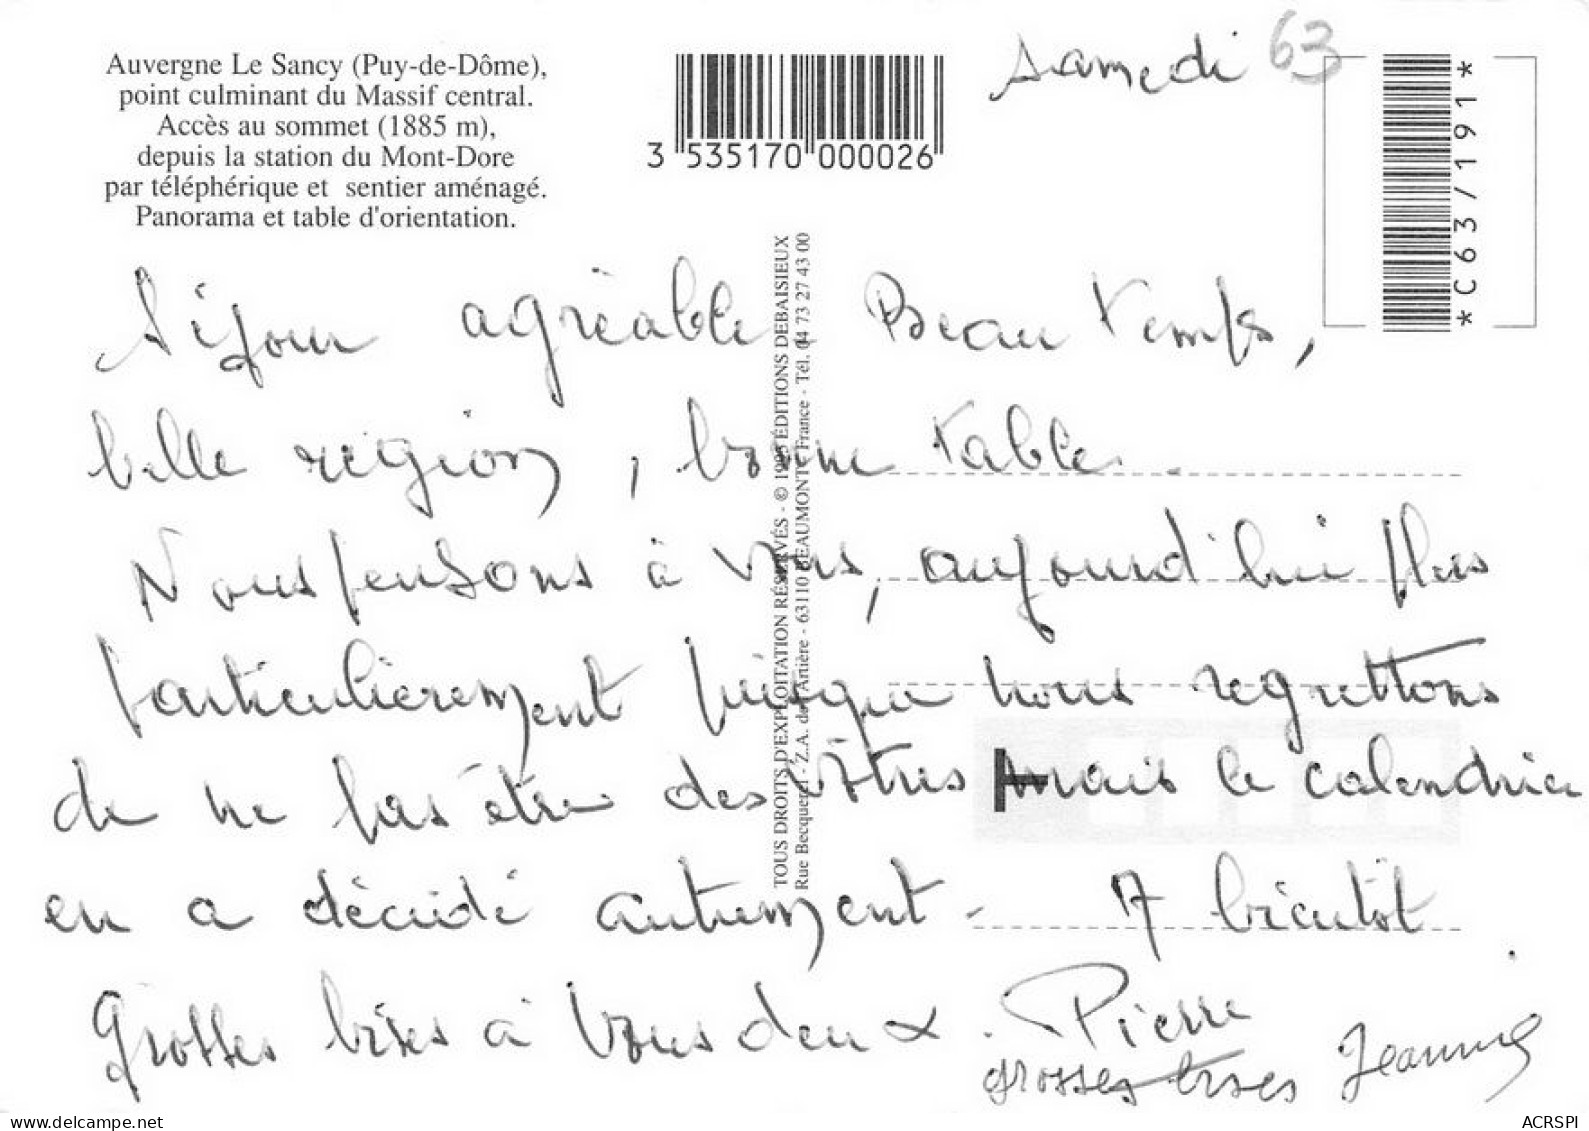 Auvergne Le Sancy (Puy-de-Dôme),
point culminant du Massif central.
Accès au sommet (1885 m),
depuis la station du Mont-Dore
par téléphérique et sentier aménagé.
Panorama et table d'orientation.
3 535170 000026
samedi 63
*C63/191*
Séjour agréable Beau temps,
belle région, bonne table.
Nous pensons à vous, aujourd'hui plus
particulièrement puisque nous regrettons
de ne pas être des vôtres mais le calendrier
en a décidé autrement - A bientôt
Grosses bises à vous deux. Pierre
grosses bises Jeannie
TOUS DROITS D'EXPLOITATION RÉSERVÉS - © ÉDITIONS DEBAISIEUX
Rue Becquerel - Z.A. de l'Artière - 63110 BEAUMONT - France - Tél. 04 73 27 43 00
delcampe.net
ACRSPI